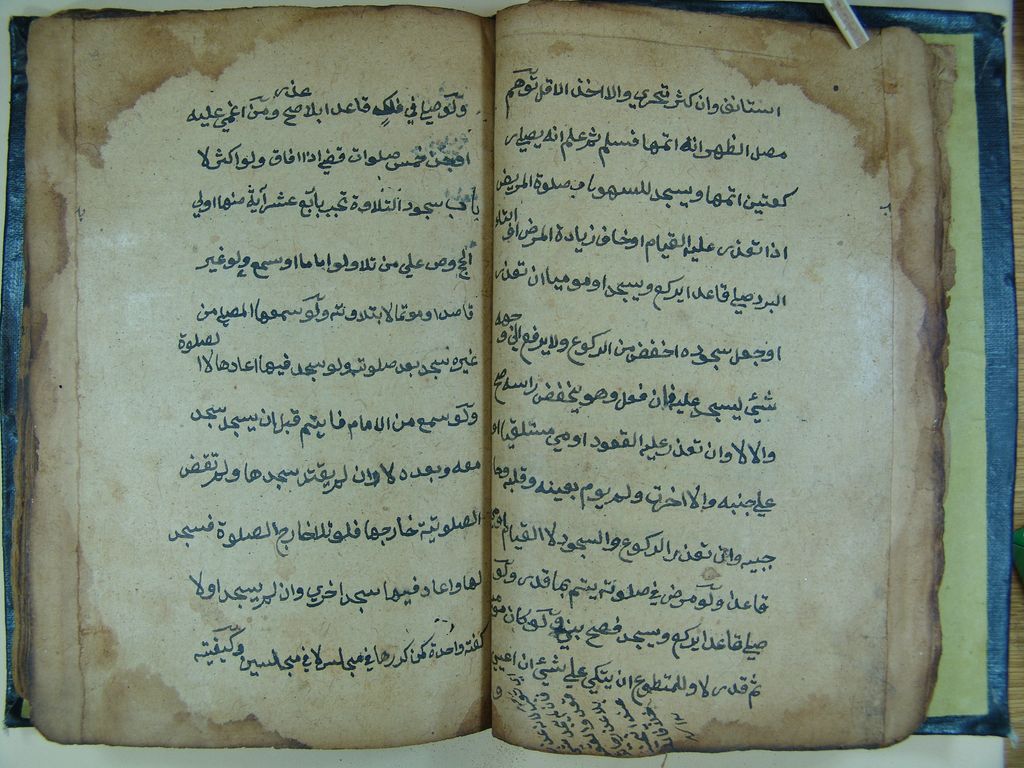 استانف وان كثر تحري والا اخذ الاقل توهم
مصل الظهر انه اتمها فسلم ثم علم انه يصلي ر
كعتين اتمها ويسجد للسهو باب صلوة المريض
اذا تعذر عليه القيام او خاف زيادة المرض
البرد صلي قاعدا يركع ويسجد او موميا ان تعذر
او جعل سجوده اخفض من الركوع ولا يرفع الي وجهه
شئ ليسجد عليه فان فعل وهو يخفض راسه صح
والا لا وان تعذر عليه القعود اومي مستلقيا او
علي جنبه والا اخرت ولم يوم بعينه وقلبه وحا
جبيه وان تعذر الركوع والسجود لا القيام اومي
قاعدا ولو مرض في صلوته يتم بما قدر ولو
صلي قاعدا يركع ويسجد فصح بني ولو كان موميا
ثم قدر لا وللمتطوع ان يتكي علي شئ ان اعيي
ولو صلي في فلك قاعدا بلا عذر صح ومن اغمي عليه
او جن خمس صلوات قضي اذا افاق ولو اكثر لا
باب سجود التلاوة تجب باربع عشر آية منها اولي
الحج وص علي من تلا ولو اماما او سمع ولو غير
قاصد او مؤتما لا بتلاوته ولو سمعها المصلي من
غيره سجد بعد صلوته ولو سجد فيها اعادها لا الصلوة
ولو سمع من الامام فايتم قبل ان يسجد سجد
معه وبعده لا وان لم يقتد سجدها ولم تقض
الصلوتية خارجها فلو تلا خارج الصلوة فسجد
لها واعاد فيها سجد اخري وان لم يسجد اولا
كفته واحدة كمن كررها في مجلس لا في مجلسين وكيفيته